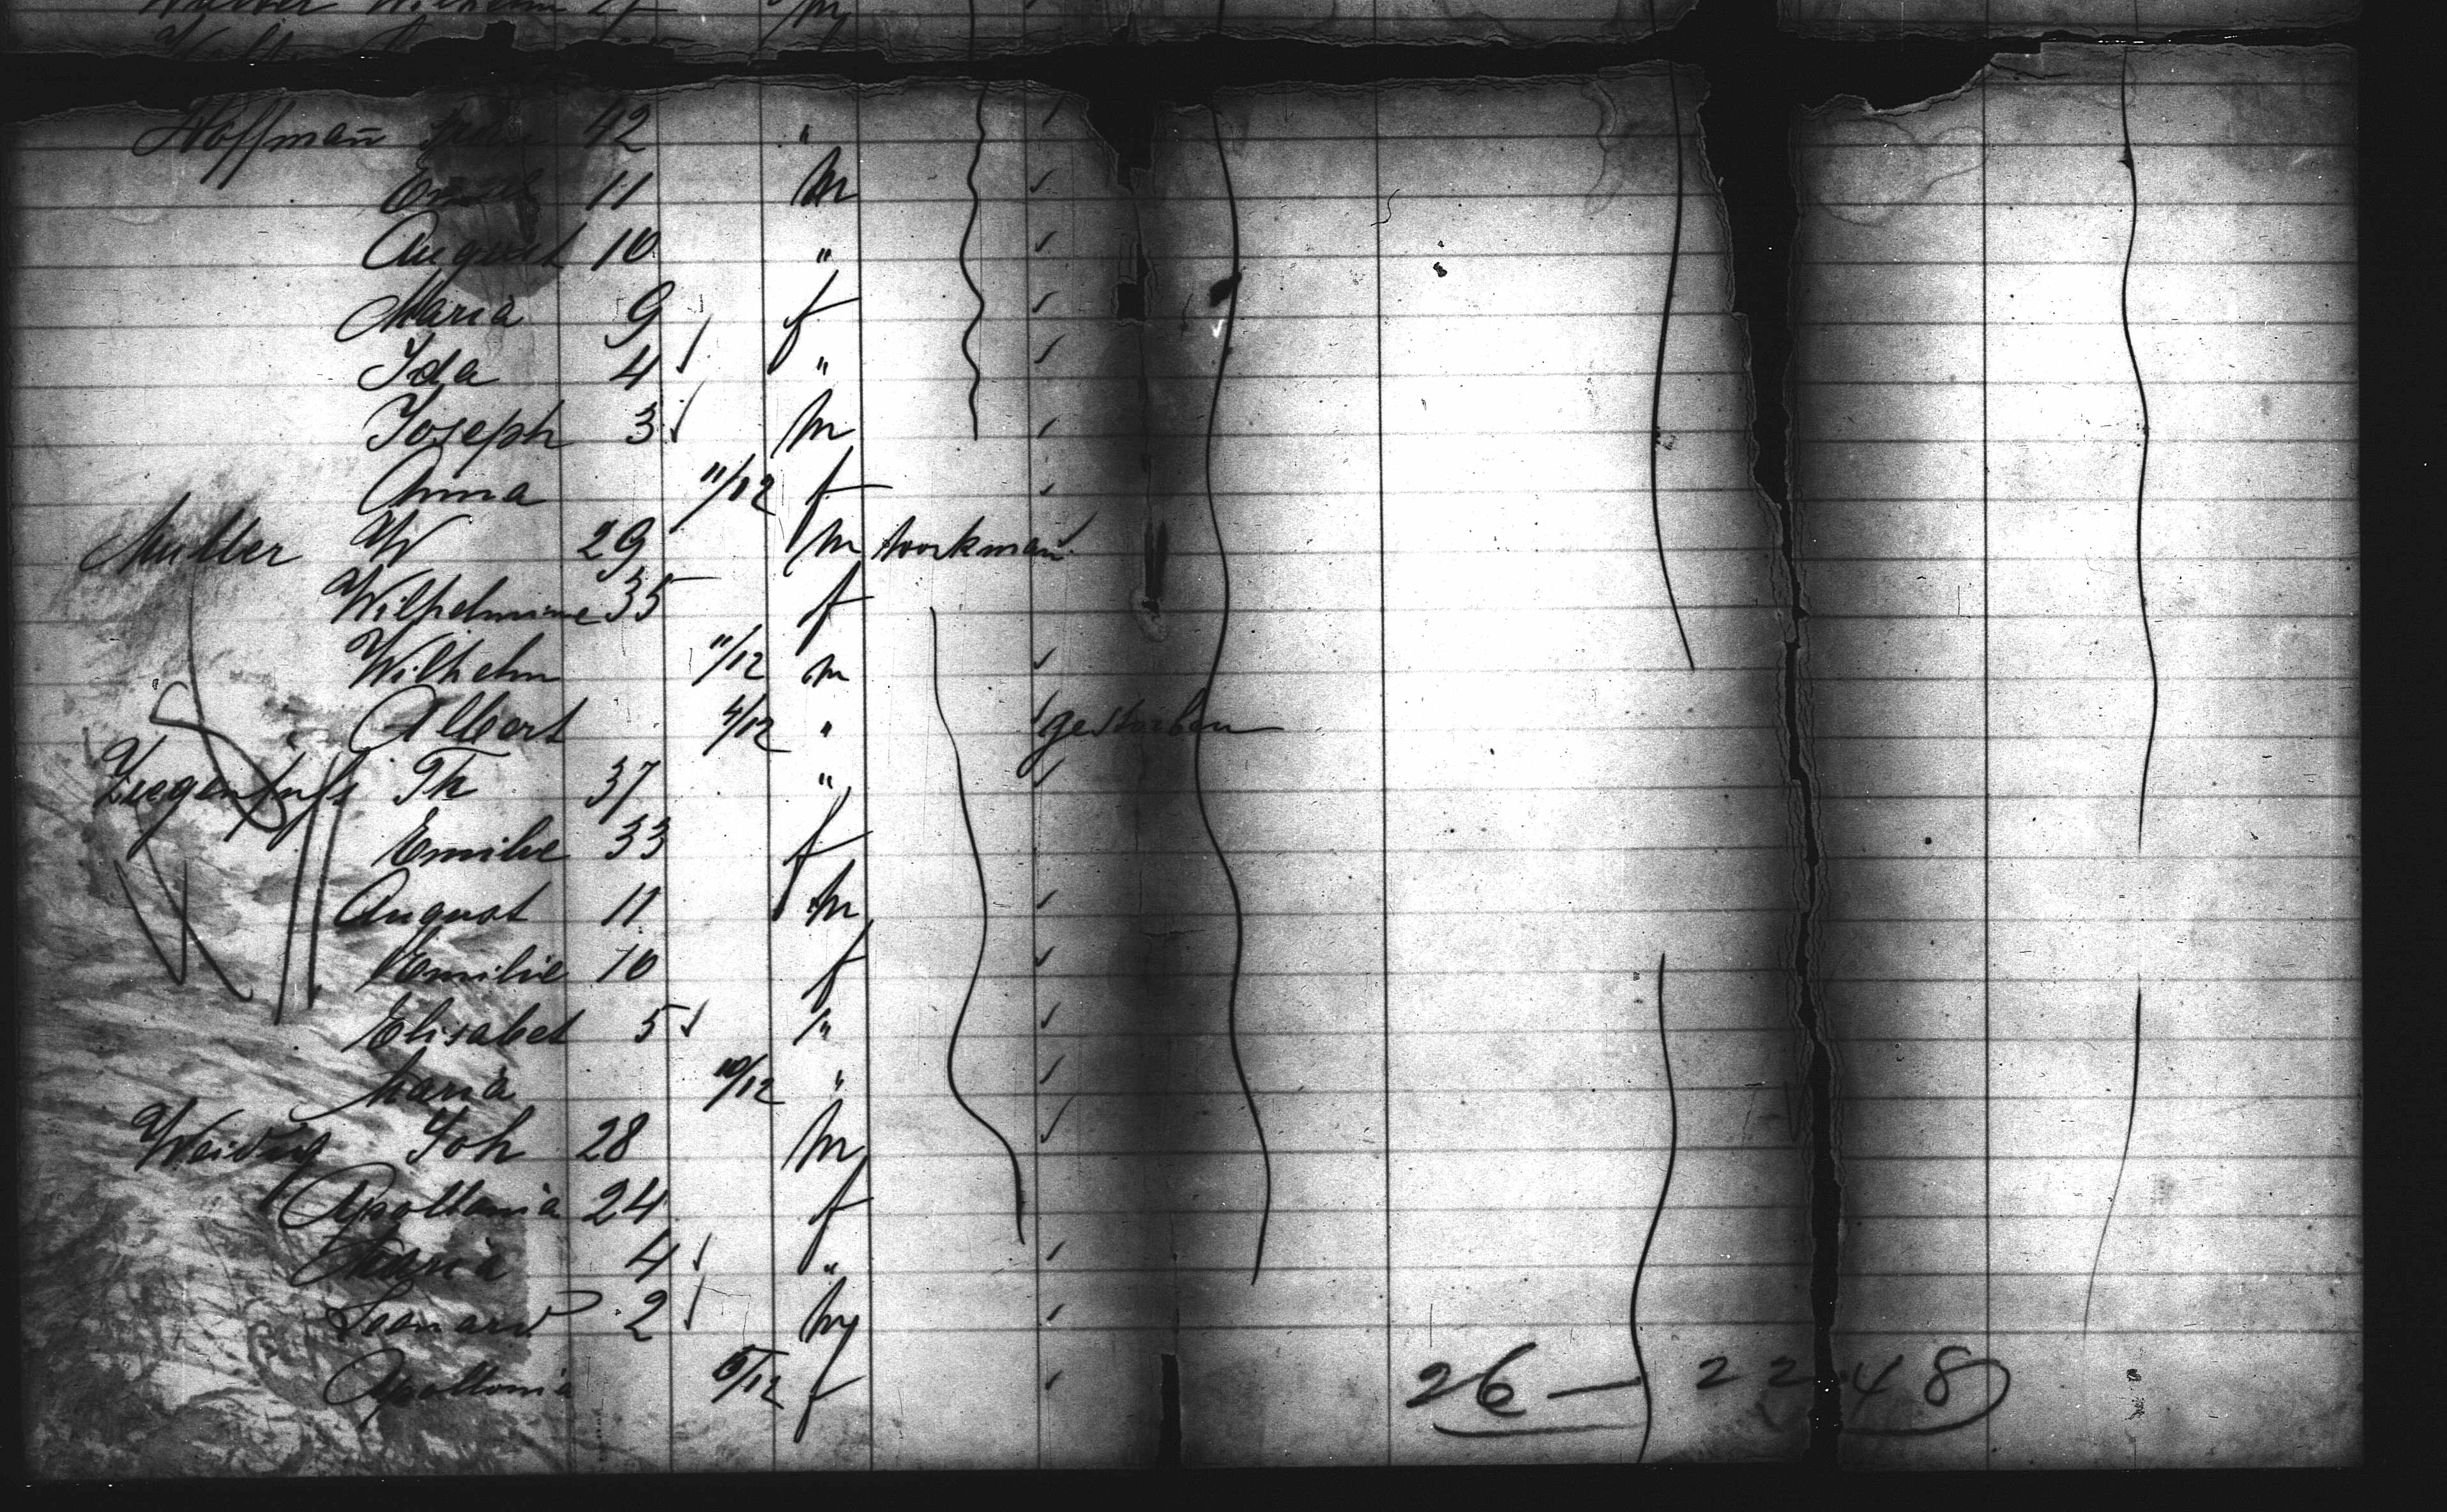 Walter Wilhelm
Hoffman̄ 42 "
11 m
August 10 "
Maria 9 f
Ida 4 "
Joseph 3 m
Anna 11/12 f
Muller W 29 m workman̄
Wilhelmine 35 f
Wilhelm 11/12 m
Albert 4/12 " gestorben
Ziegenfuss Th 37 "
Emilie 33 f
August 11 m
Emilie 10 f
Elisabet 5 "
Maria 10/12 "
Weidig Joh 28 m
Apollonia 24 f
Maria 4 "
Leonard 2 m
Apollonia 5/12 f
26 — 22 48